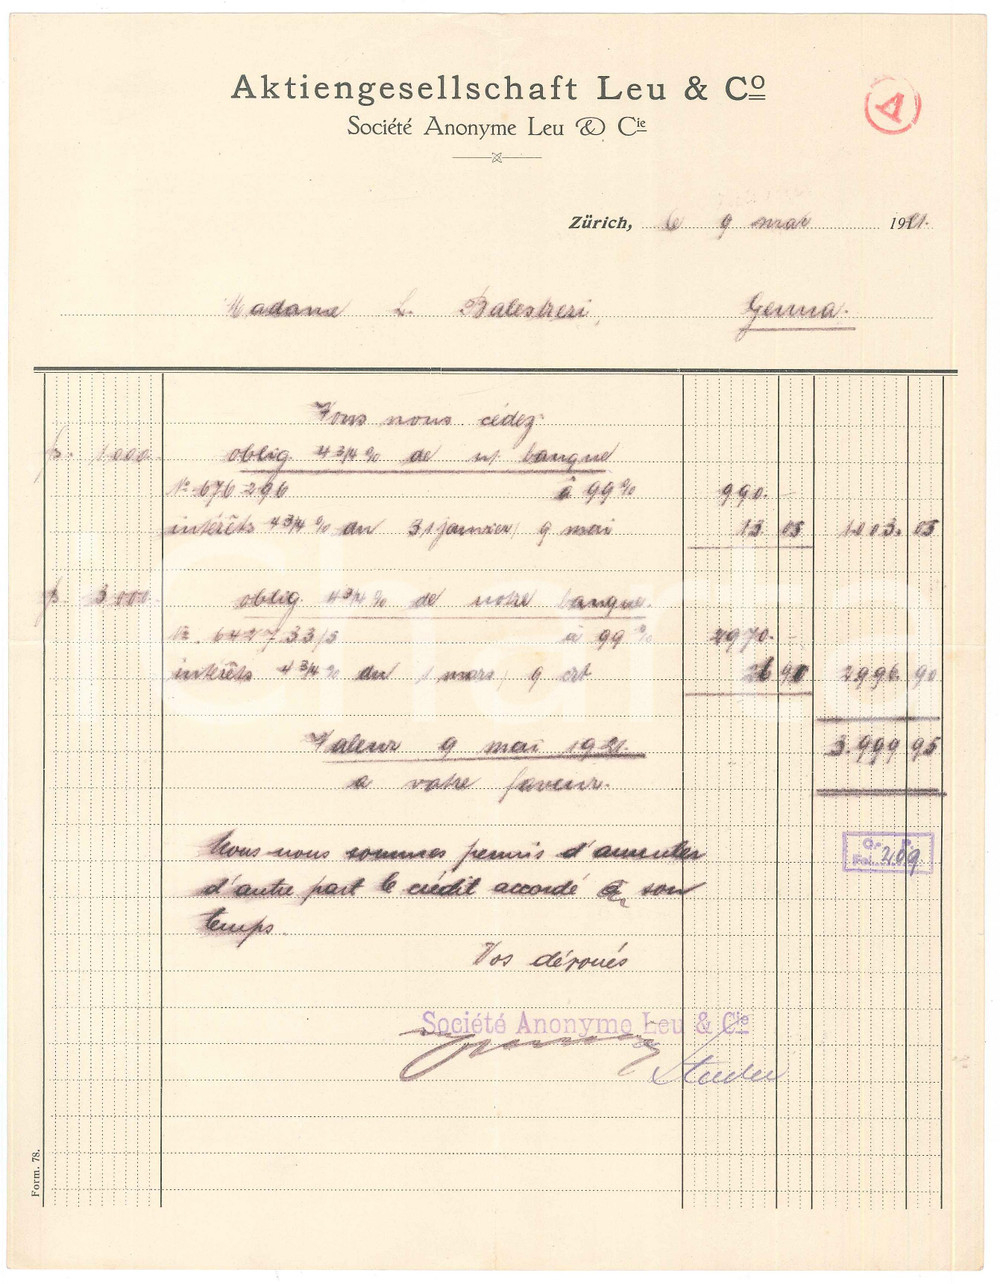 Aktiengesellschaft Leu & Cº
Société Anonyme Leu & Cie
A
Zürich, le 9 mai 1921.
Madame L. Balestreri, Genua.
Vous nous cédez:
fs. 1000.- oblig. 4 3/4 % de n/ banque
Nº 676296 à 99 % 990.-
intérêts 4 3/4 % du 31 janvier/ 9 mai 13.05 1003.05
fs. 3000.- oblig 4 3/4 % de notre banque.
Nº. 642733/5 à 99 % 2970.-
intérêts 4 3/4 % du 1 mars/ 9 crt 26.90 2996.90
Valeur 9 mai 1921. 3.999.95
a votre faveur.
Nous nous sommes permis d'annuler
d'autre part le crédit accordé en son
temps.
209.
Vos dévoués
Société Anonyme Leu & Cie
Studer
Form. 78.
Charta